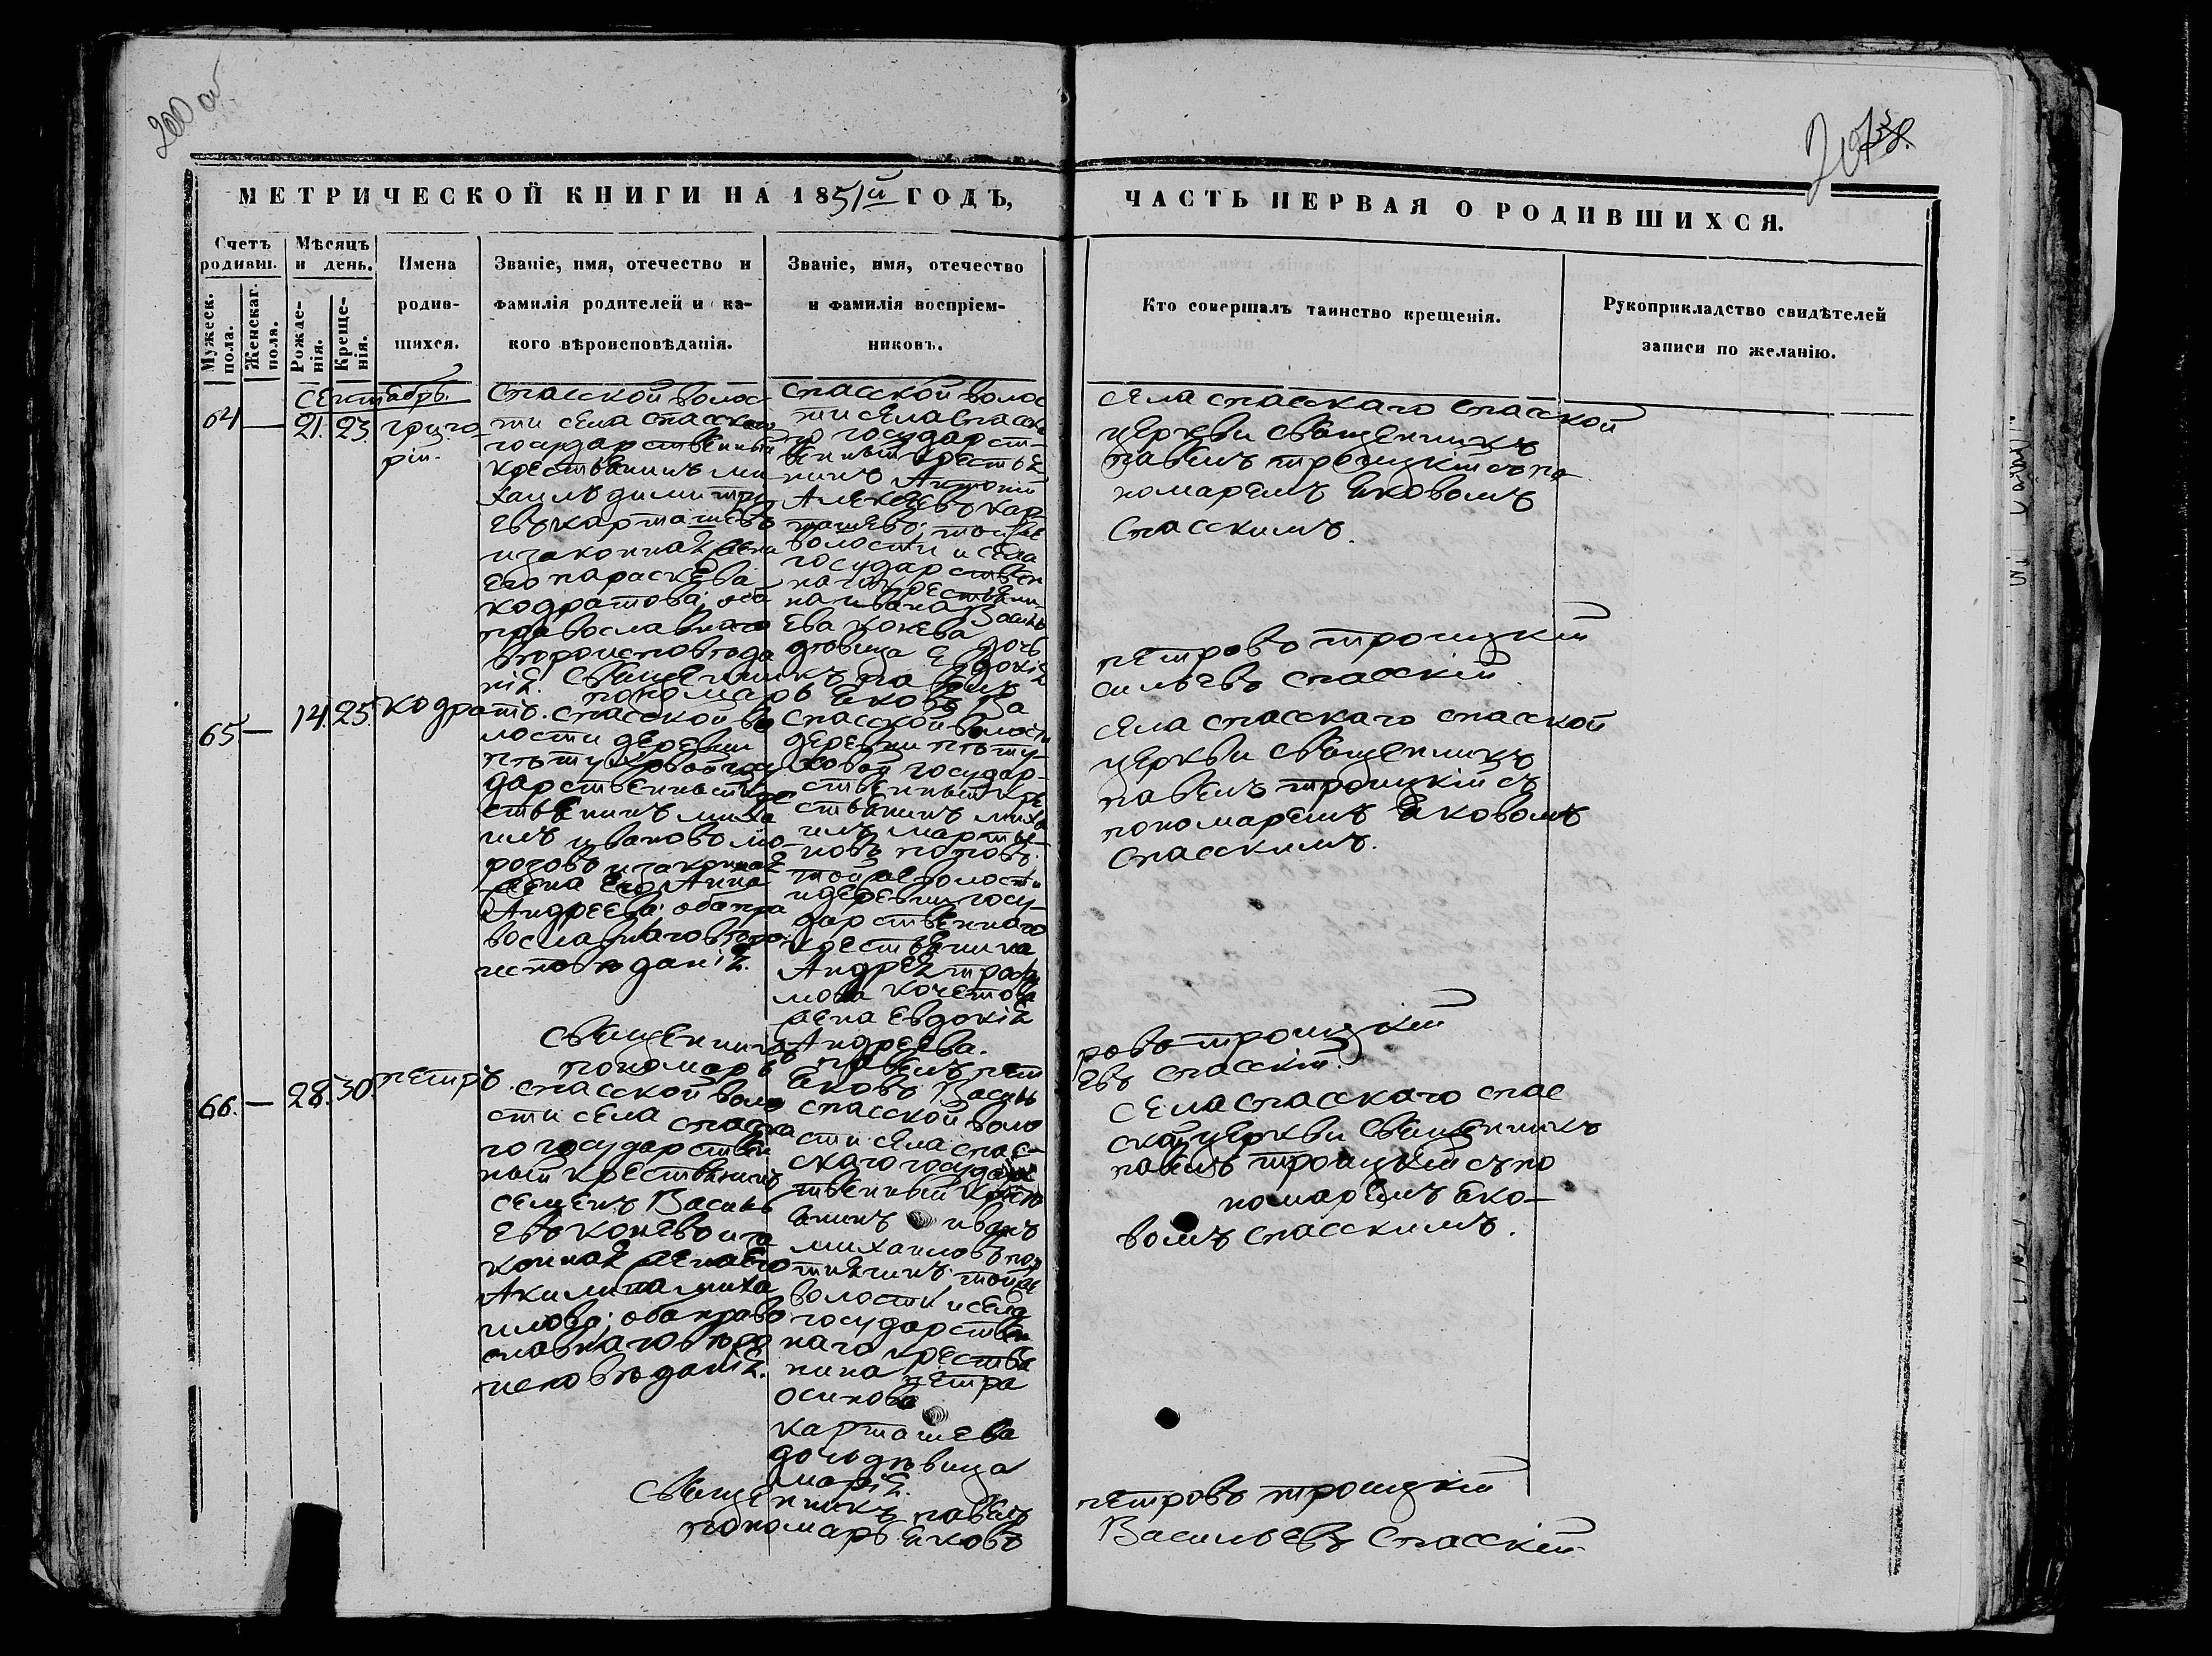 200 об
МЕТРИЧЕСКОЙ КНИГИ НА 1851й ГОДЪ,
ЧАСТЬ ПЕРВАЯ О РОДИВШИХСЯ.
Счетъ родивш.
Мужеск. пола.
Женскаг. пола.
Мѣсяцъ и день.
Рожде-нія.
Креще-нія.
Имена
родив-
шихся.
Званіе, имя, отечество и
фамилія родителей и ка-
кого вѣроисповѣданія.
Званіе, имя, отечество
и фамилія воспріем-
никовъ.
Кто совершалъ таинство крещенія.
Рукоприкладство свидѣтелей
записи по желанію.
сентябрь
64 — 21. 23. григо-
рій.
спасской волос
ти села спасскаго
государственный
крестьянинъ ми
хаилъ димитрі
евъ карташевъ
и законная жена
его параскева
кодратова; оба
православнаго
вѣроисповѣда
нія.
спасской волос
ти села спасска
го государст-
венный крестья
нинъ Антоній
Алексѣевъ кар-
ташевъ; той же
волости и села
государствен
наго крестьяни-
на ивана Василь
ева конева дочь
дѣвица Евдокія
села спасскаго спасской
церкви священникъ
павелъ троицкій съ по
номаремъ яковомъ
спасскимъ.
священникъ павелъ петровъ троицкій
пономарь яковъ Ва сильевъ спасскій
65 — 14. 25. кодратъ.
спасской во
лости деревни
пѣтуховой госу
дарственный кре
стьянинъ миха
илъ ивановъ мо-
розовъ и законная
жена его Анна
Андреева; оба пра
вославнаго вѣро
исповѣданія.
спасской волости
деревни пѣту-
ховой государ-
ственный кре
стьянинъ миха
илъ мартые-
новъ поповъ.
той же волости
и деревни госу-
дарственнаго
крестьянина
Андрея трофи
мова кочетова
жена Евдокія
Андреева.
села спасскаго спасской
церкви священникъ
павелъ троицкій съ
пономаремъ яковомъ
спасскимъ.
священникъ павелъ пет ровъ троицкій
пономарь яковъ Василь евъ спасскій.
66. — 28. 30. петръ.
спасской воло
сти села спасска
го государствен
ный крестьянинъ
семенъ Василь
евъ коневъ и за
конная жена его
Акилина миха
илова; оба право
славнаго вѣро
исповѣданія.
спасской воло
сти села спас-
скаго государс
твенный кресть
янинъ иванъ
михаиловъ
той же
волости и села
государствен
наго крестья
нина петра
осипова
карташева
дочь дѣвица
марія.
села спасскаго спас
ской церкви священникъ
павелъ троицкій съ по
номаремъ яко-
вомъ спасскимъ.
священникъ павелъ петровъ троицкій
пономарь яковъ Васильевъ Спасскій